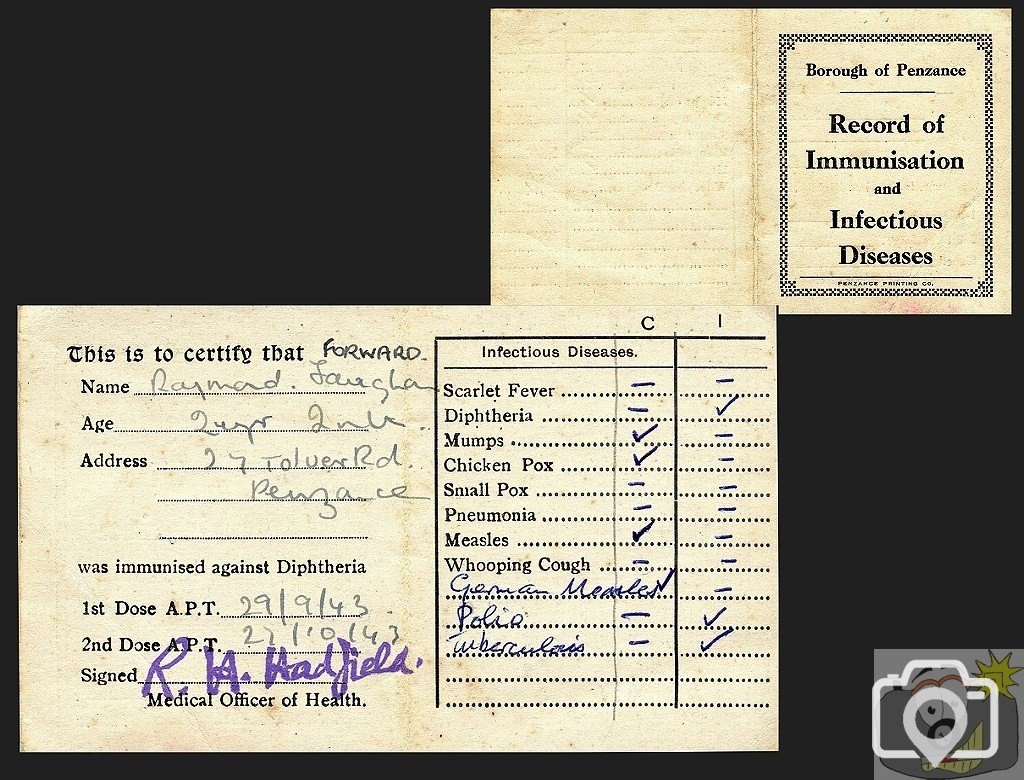 Borough of Penzance
Record of
Immunisation
and
Infectious
Diseases
PENZANCE PRINTING CO.
This is to certify that FORWARD.
Name Raymond.
Age 2 yr 2
Address 27 Tolver Rd.
Penzance
was immunised against Diphtheria
1st Dose A.P.T. 29/9/43
2nd Dose A.P.T. 27/10/43
Signed R. H. Hadfield.
Medical Officer of Health.
C I
Infectious Diseases.
Scarlet Fever – –
Diphtheria – ✓
Mumps ✓ –
Chicken Pox ✓ –
Small Pox – –
Pneumonia – –
Measles ✓ –
Whooping Cough – –
German Measles ✓ –
Polio – ✓
Tuberculosis – ✓